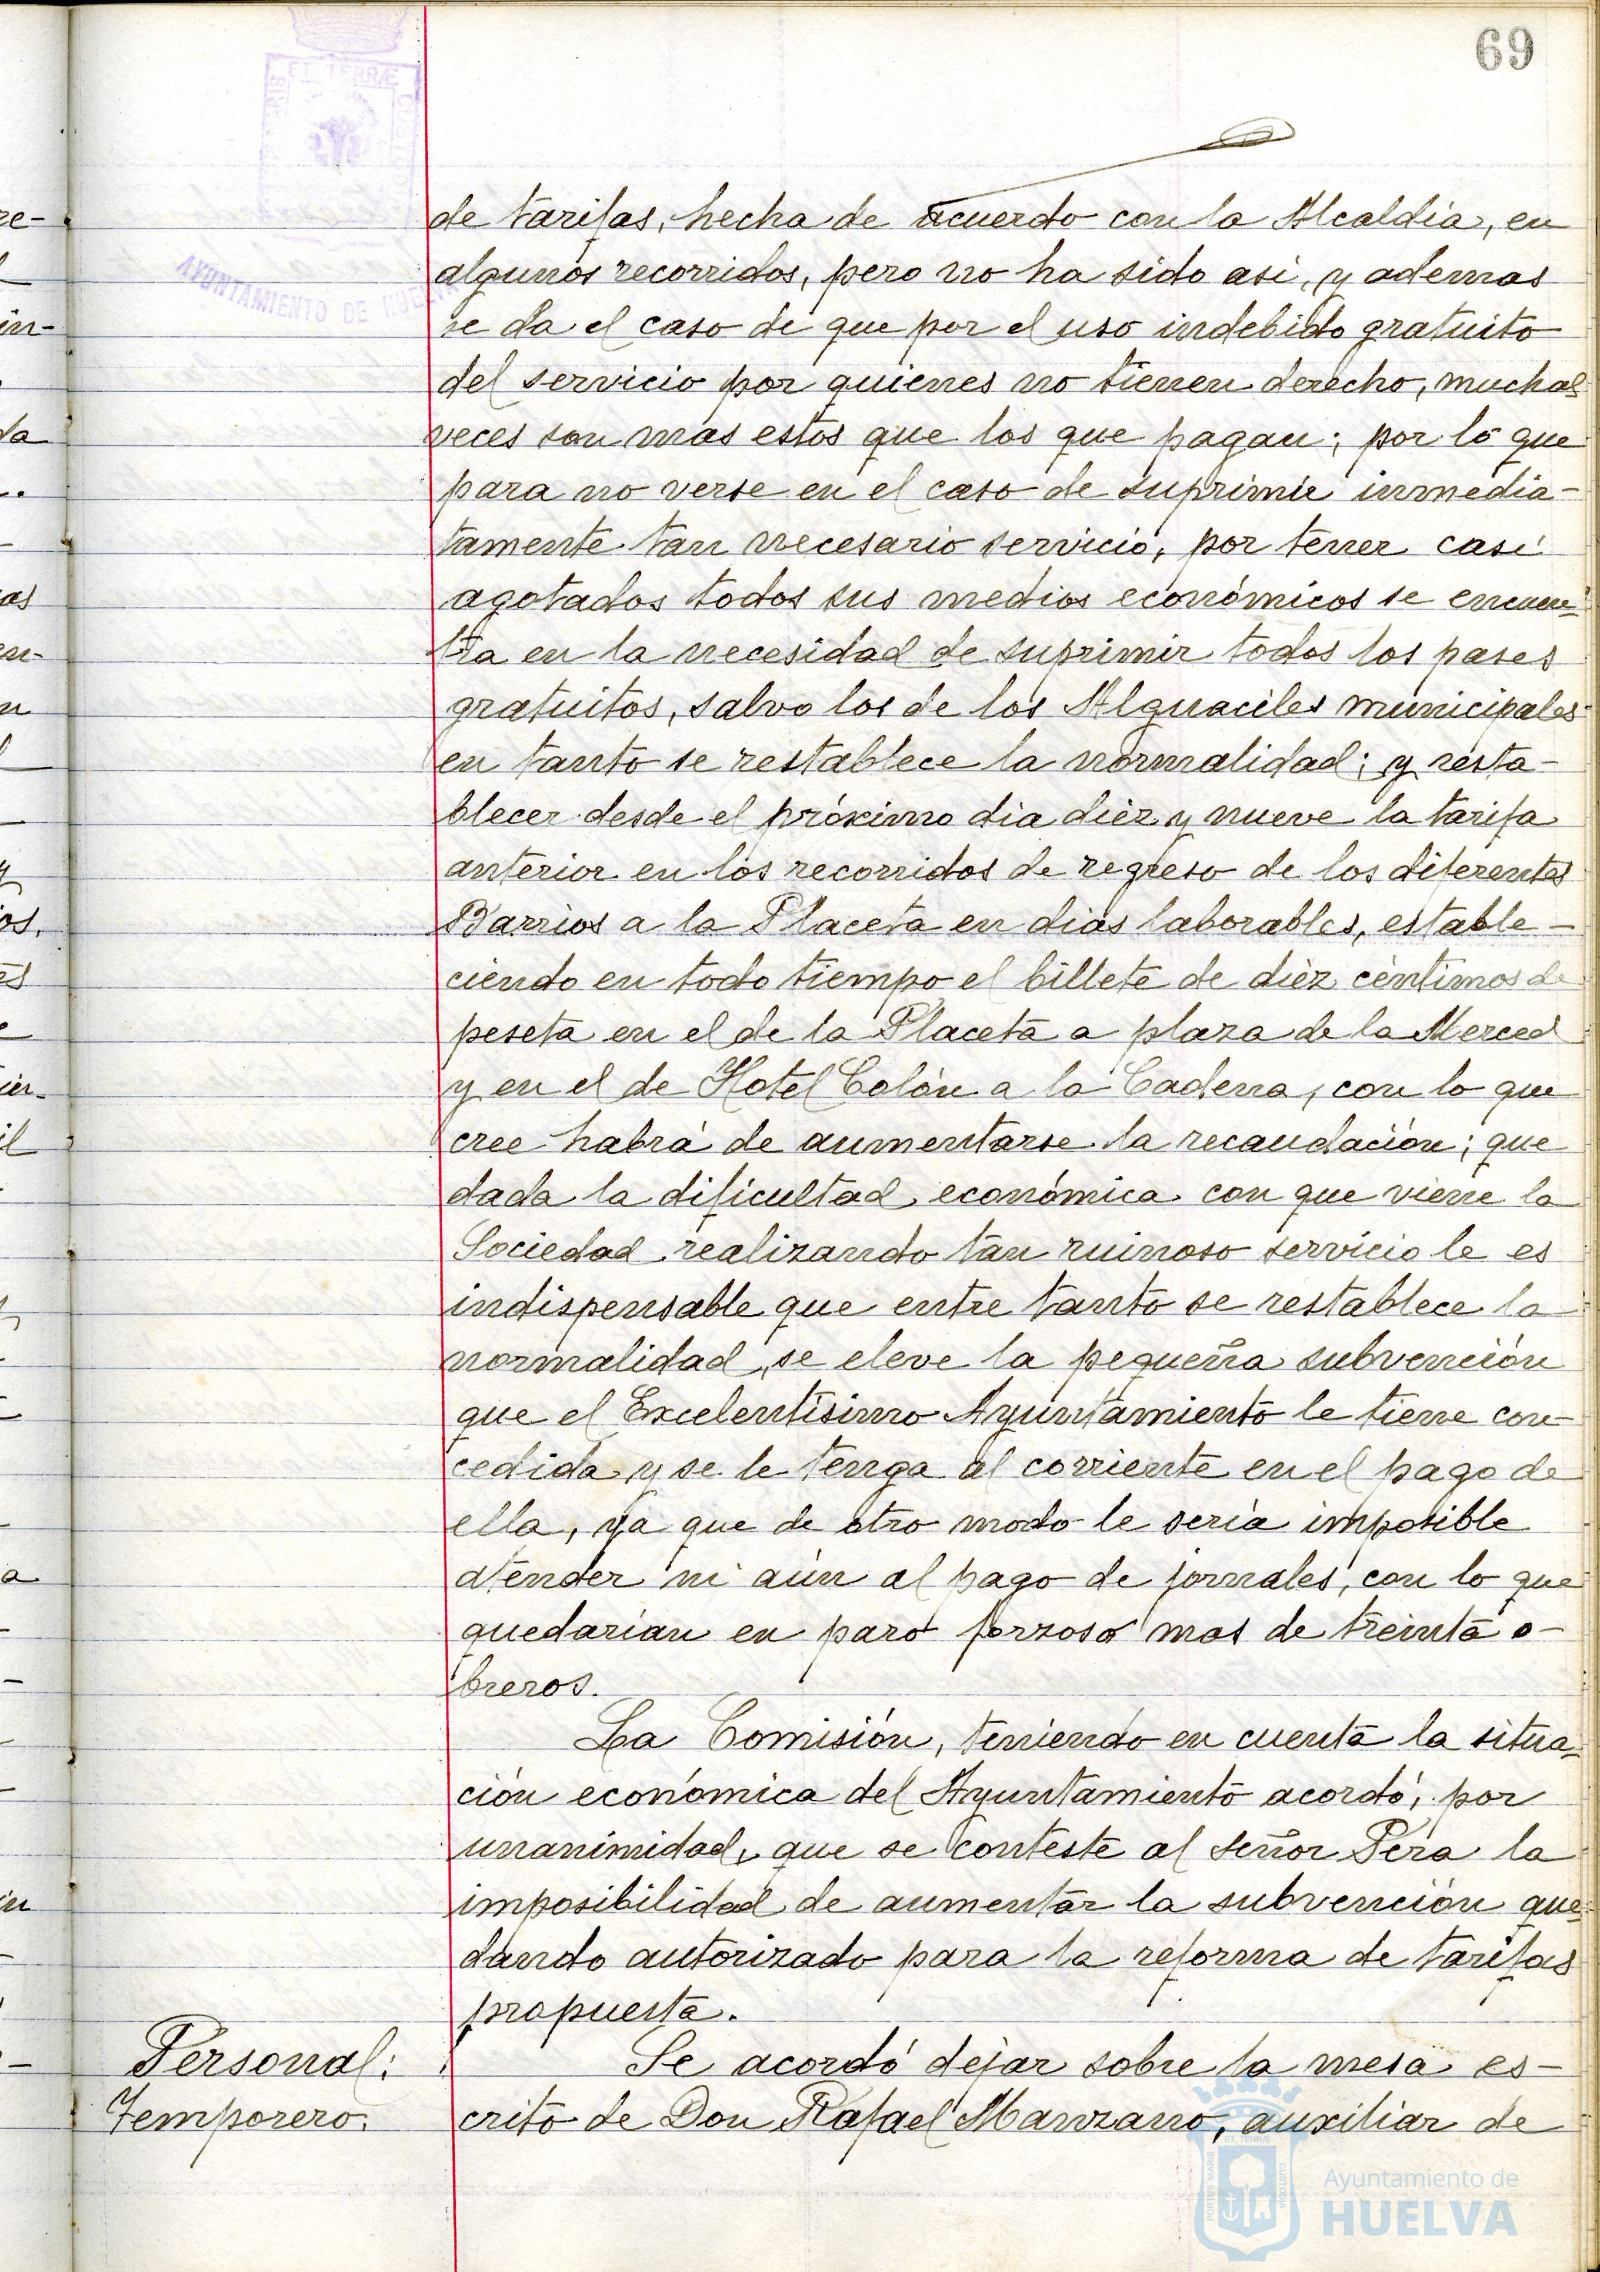 69
ET TERRÆ
AYUNTAMIENTO DE HUELVA
de tarifas, hecha de acuerdo con la Alcaldia, en
algunos recorridos, pero no ha sido asi, y ademas
se da el caso de que por el uso indebido gratuito
del servicio por quienes no tienen derecho, muchas
veces son mas estos que los que pagan; por lo que
para no verse en el caso de suprimir inmedia-
tamente tan necesario servicio, por tener casi
agotados todos sus medios económicos se encuen-
tra en la necesidad de suprimir todos los pases
gratuitos, salvo los de los Alguaciles municipales
en tanto se restablece la normalidad; y resta-
blecer desde el próximo dia diez y nueve la tarifa
anterior en los recorridos de regreso de los diferentes
Barrios a la Placeta en dias laborables, estable-
ciendo en todo tiempo el billete de diez céntimos de
peseta en el de la Placeta a plaza de la Merced
y en el de Hotel Colón a la Cadena, con lo que
cree habrá de aumentarse la recaudación; que
dada la dificultad económica con que viene la
Sociedad realizando tan ruinoso servicio le es
indispensable que entre tanto se restablece la
normalidad, se eleve la pequeña subvención
que el Excelentísimo Ayuntamiento le tiene con-
cedida y se le tenga al corriente en el pago de
ella, ya que de otro modo le sería imposible
atender ni aún al pago de jornales, con lo que
quedarían en paro forzoso mas de treinta o-
breros.
La Comisión, teniendo en cuenta la situa-
ción económica del Ayuntamiento acordó, por
unanimidad, que se conteste al señor Pera la
imposibilidad de aumentar la subvención que-
dando autorizado para la reforma de tarifas
propuesta.
Personal:
Temporero.
Se acordó dejar sobre la mesa es-
crito de Don Rafael Manzano, auxiliar de
Ayuntamiento de
HUELVA